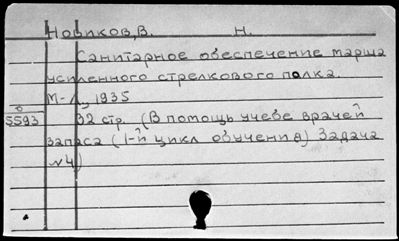 Новиков, В. Н.
Санитарное обеспечение марша
усиленного стрелкового полка.
М-Л, 1935
5593 32 стр. (В помощь учебе врачей
запаса (1-й цикл обучения) Задача
№4)